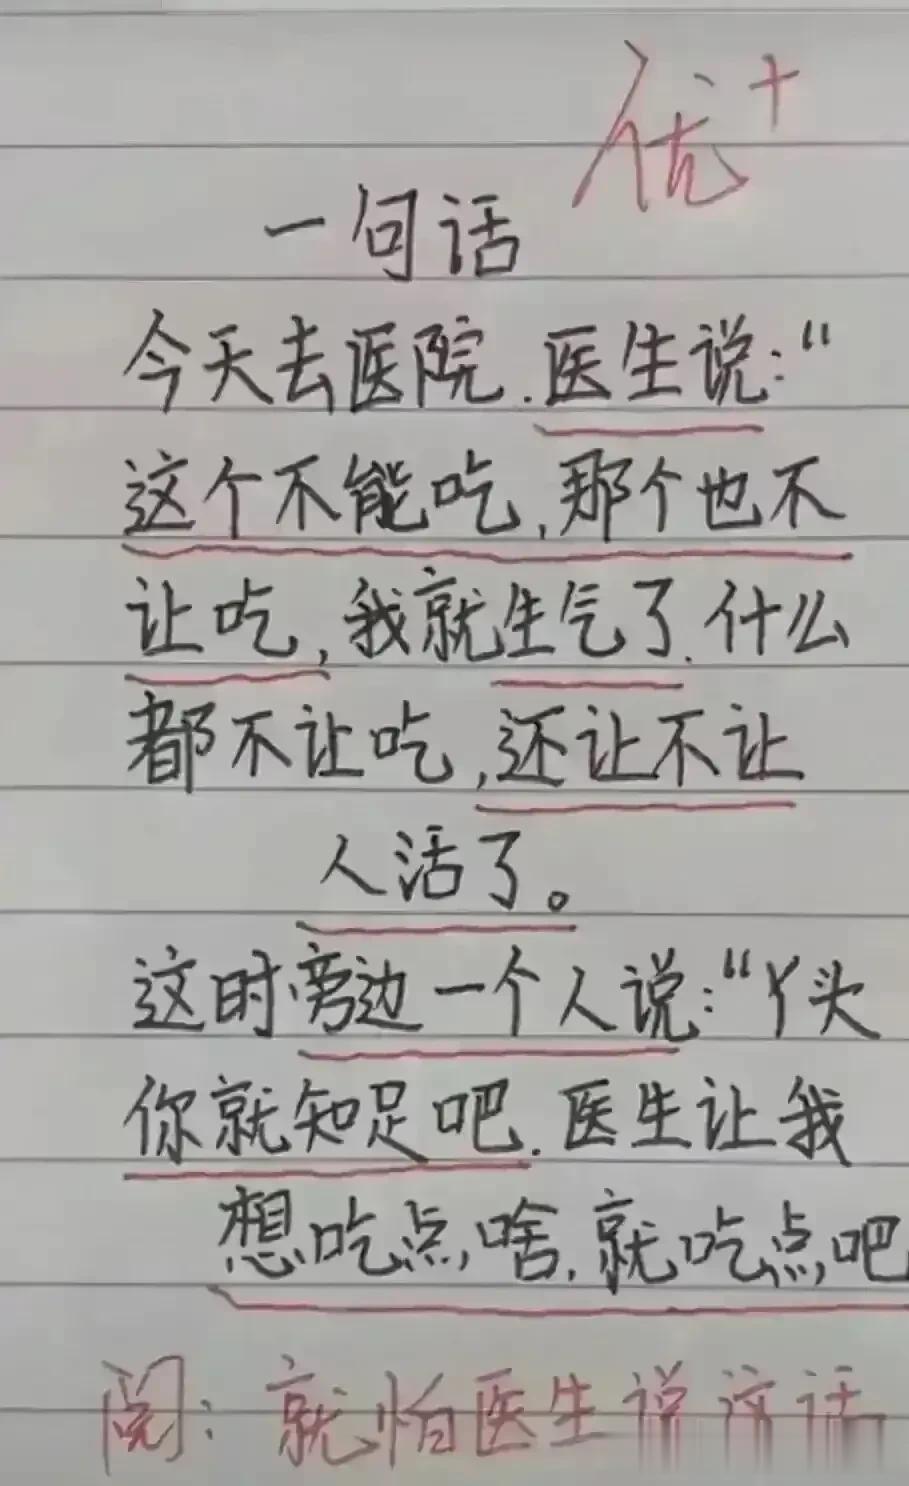 优+
一句话
今天去医院.医生说:“
这个不能吃,那个也不
让吃,我就生气了.什么
都不让吃,还让不让
人活了。
这时旁边一个人说:“丫头
你就知足吧.医生让我
想吃点啥,就吃点吧
阅:就怕医生说这话